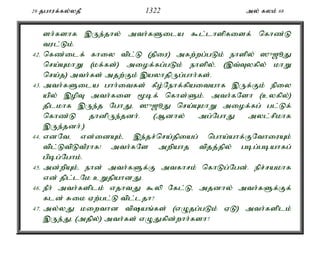 29 தபாரக்கல்லதீ 1322 அல் கலம் 68
ளர்களாக இருந்தால் அவர்களுடைய கூட்டாளிகளைக் கொண்டு
வரட்டும்.
42. கெண்டைக் காலை விட்டு (திரை) அகற்றப்படும் நாளில் ஸுஜூது
செய்யுமாறு (மக்கள்) அழைக்கப்படும் நாளில், (இவ்வுலகில் மாறு
செய்த) அவர்கள் அதற்கும் இயலாதிருப்பார்கள்.
43. அவர்களுடைய பார்வைகள் கீழ்நோக்கியவையாக இருக்கும் நிலை
யில் இழிவு அவர்களை மூடிக் கொள்ளும். அவர்களோ (உலகில்)
திடமாக இருந்த போது, ஸுஜூது செய்யுமாறு அழைக்கப் பட்டுக்
கொண்டு தானிருந்தனர். (ஆனால் அப்போது அலட்சிமாக
இருந்தனர்.)
44. எனவே, என்னையும், இந்தச்செய்தியைப் பொய்யாக்குவோரையும்
விட்டுவிடுவீராக! அவர்களே அறியாத விதத்தில் படிப்படியாகப்
பிடிப்போம்.
45. அன்றியும், நான் அவர்களுக்கு அவகாசம் கொடுப்பேன். நிச்சயமாக
என் திட்டமே உறுதியானது.
46. நீர் அவர்களிடம் ஏதாவது கூலி கேட்டு, அதனால் அவர்களுக்குக்
கடன் சுமை ஏற்பட்டு விட்டதா?
47. அல்லது மறைவான விஷயங்கள் (எழுதப்படும் ஏடு) அவர்களிடம்
இருந்து, (அதில்) அவர்கள் எழுதுகின்றார்களா?